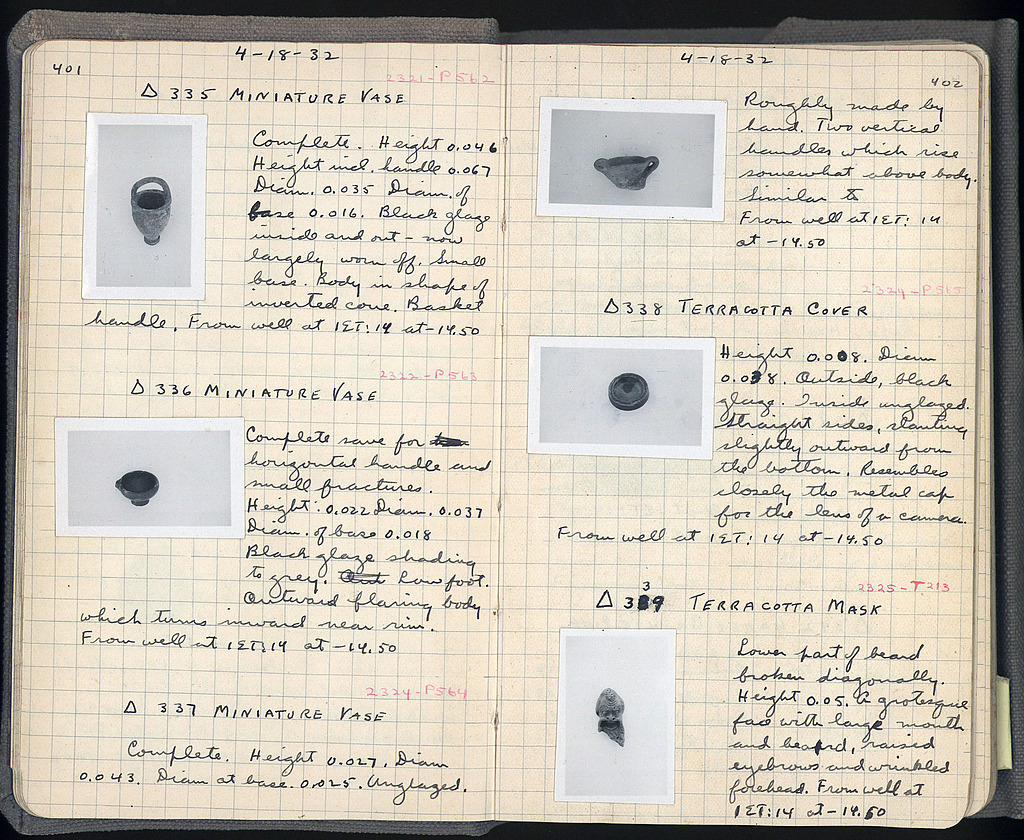 401
4-18-32
2321-P562
Δ 335 MINIATURE VASE
Complete. Height 0.046
Height incl. handle 0.067
Diam. 0.035 Diam. of
base 0.016. Black glaze
inside and out – now
largely worn off. Small
base. Body in shape of
inverted cone. Basket
handle. From well at 1ET:14 at -14.50
2322-P563
Δ 336 MINIATURE VASE
Complete save for
horizontal handle and
small fractures.
Height: 0.022 Diam. 0.037
Diam. of base 0.018
Black glaze shading
to grey. Low foot.
Outward flaring body
which turns inward near rim.
From well at 1ET:14 at -14.50
2324-P564
Δ 337 MINIATURE VASE
Complete. Height 0.027. Diam
0.043. Diam at base. 0.025. Unglazed.
4-18-32
402
Roughly made by
hand. Two vertical
handles which rise
somewhat above body.
Similar to
From well at 1ET: 14
at -14.50
2324-P565
Δ 338 TERRACOTTA COVER
Height 0.008. Diam
0.038. Outside, black
glaze. Inside unglazed.
Straight sides, slanting
slightly outward from
the bottom. Resembles
closely the metal cap
for the lens of a camera.
From well at 1ET: 14 at -14.50
2325-T213
3
Δ 339 TERRACOTTA MASK
Lower part of beard
broken diagonally.
Height 0.05. A grotesque
face with large mouth
and beard, raised
eyebrows and wrinkled
forehead. From well at
1ET:14 at -14.50